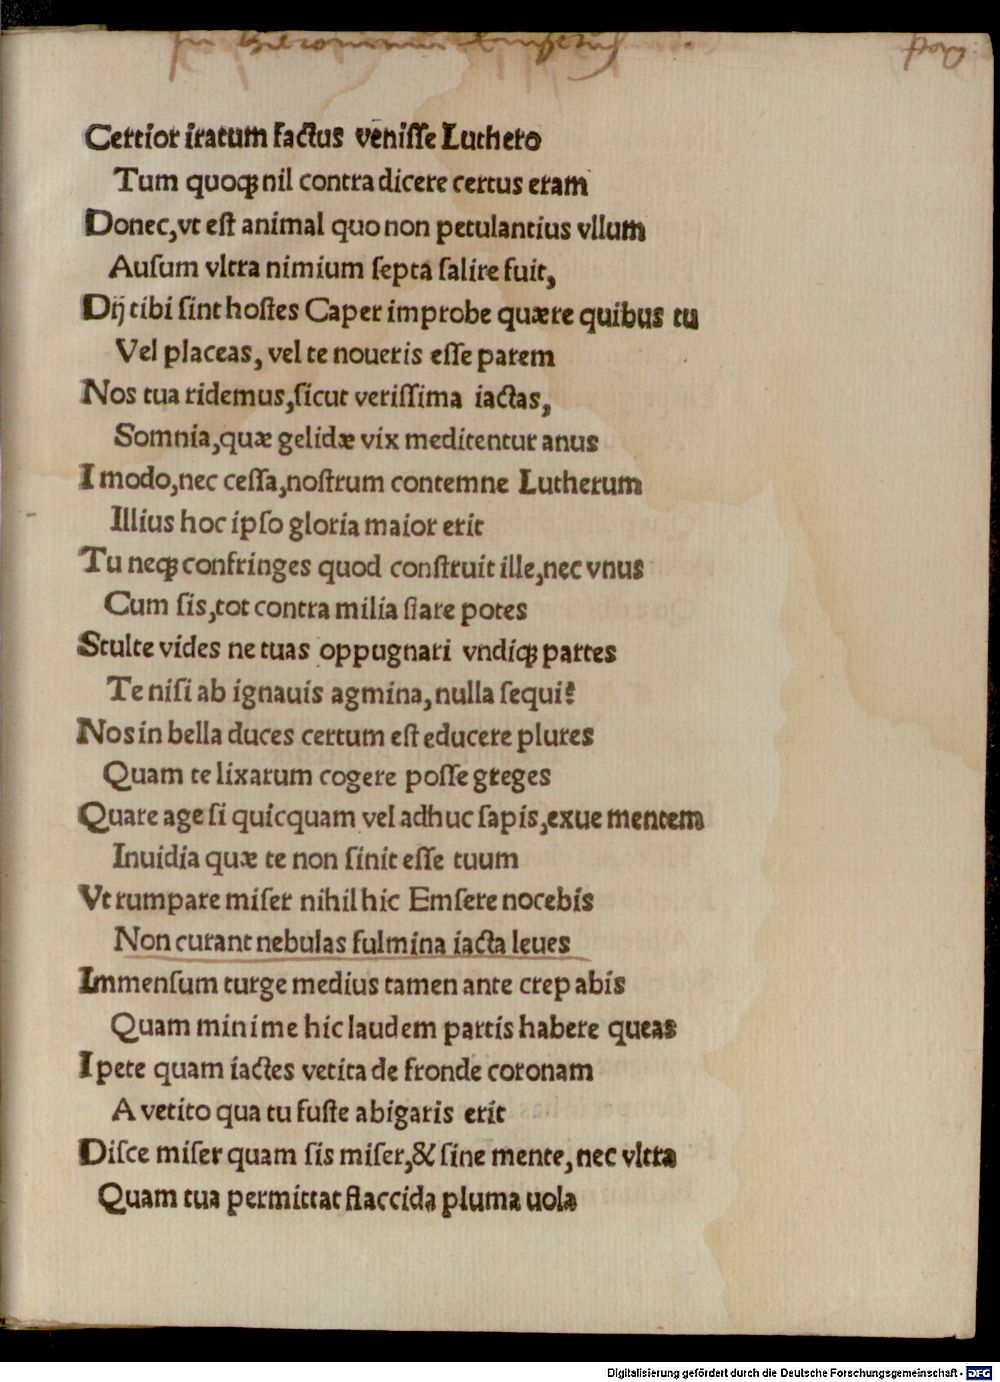 In Hieronimum Emserum
Certior iratum factus veniſſe Luthero
Tum quoqꝫ nil contra dicere certus eram
Donec, vt eſt animal quo non petulantius vllum
Auſum vltra nimium ſepta ſalire fuit,
Dij tibi ſint hoſtes Caper improbe quære quibus tu
Vel placeas, vel te noueris eſſe parem
Nos tua ridemus, ſicut veriſſima iactas,
Somnia, quæ gelidæ vix meditentur anus
I modo, nec ceſſa, noſtrum contemne Lutherum
Illius hoc ipſo gloria maior erit
Tu neqꝫ confringes quod conſtruit ille, nec vnus
Cum ſis, tot contra milia ſtare potes
Stulte vides ne tuas oppugnari vndiqꝫ partes
Te niſi ab ignauis agmina, nulla ſequi?
Nos in bella duces certum eſt educere plures
Quam te lixarum cogere poſſe greges
Quare age ſi quicquam vel adhuc ſapis, exue mentem
Inuidia quæ te non ſinit eſſe tuum
Vt rumpare miſer nihil hic Emſere nocebis
Non curant nebulas fulmina iacta leues
Immenſum turge medius tamen ante crep abis
Quam minime hic laudem partis habere queas
I pete quam iactes vetita de fronde coronam
A vetito qua tu fuſte abigaris erit
Diſce miſer quam ſis miſer, & ſine mente, nec vltra
Quam tua permittat flaccida pluma uola
Digitalisierung gefördert durch die Deutsche Forschungsgemeinschaft - DFG